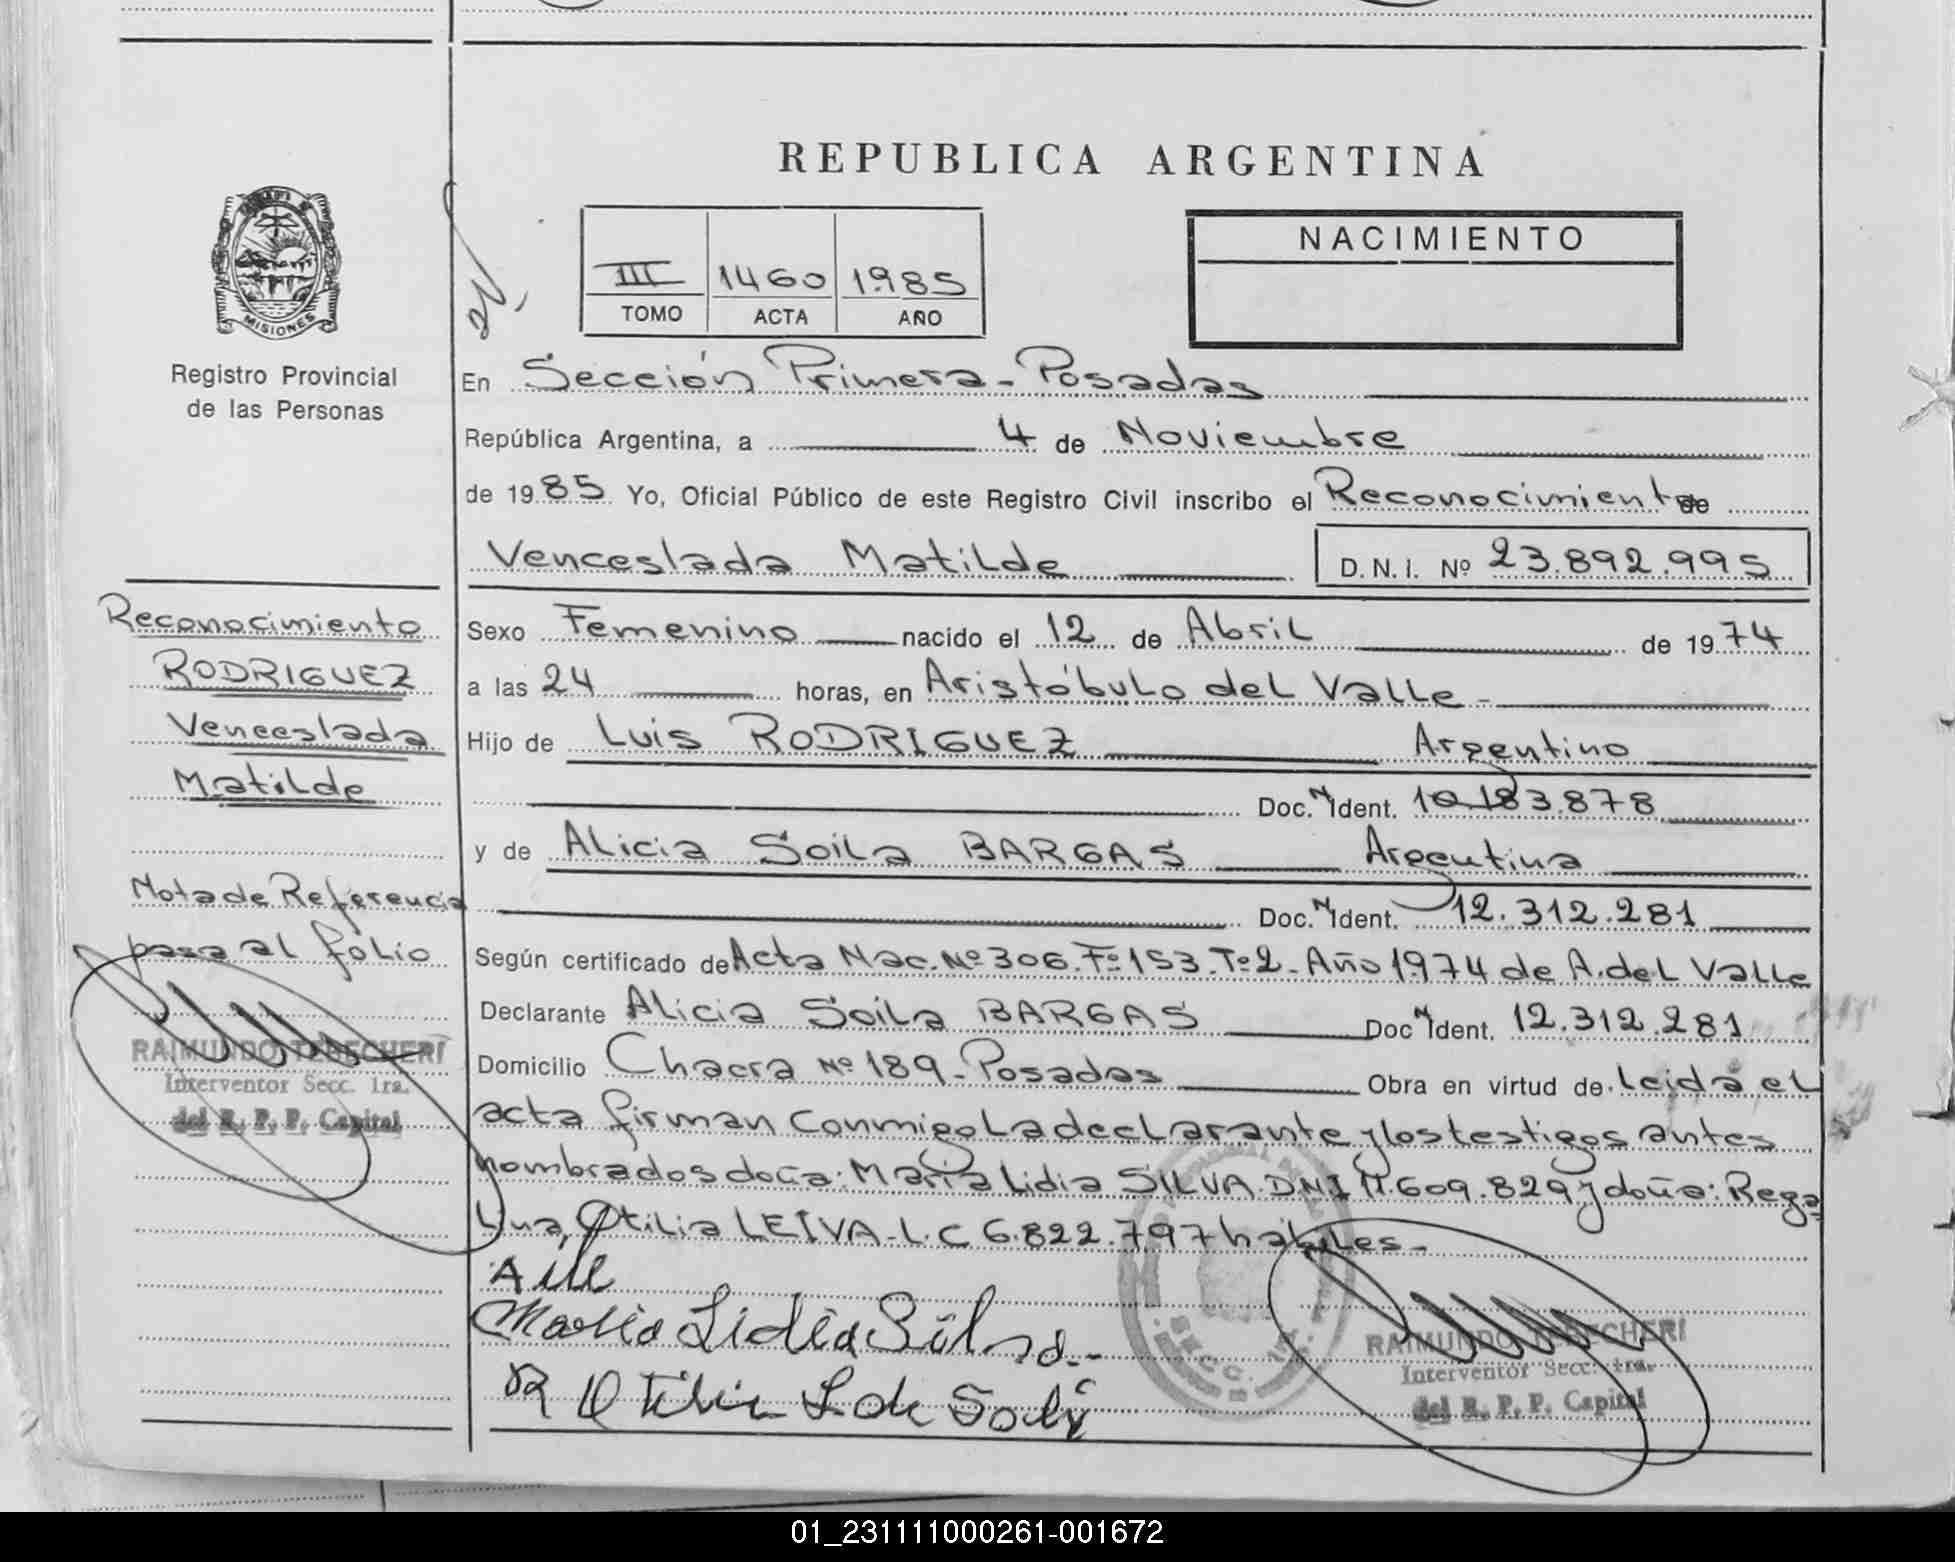 REPUBLICA ARGENTINA
NACIMIENTO
III 1460 1985
TOMO ACTA AÑO
MISIONES
Registro Provincial
de las Personas
En Sección Primera - Posadas
República Argentina, a 4 de Noviembre
de 1985 Yo, Oficial Público de este Registro Civil inscribo el Reconocimiento de
Venceslada Matilde D.N.I. Nº 23.892.995
Reconocimiento
RODRIGUEZ
Venceslada
Matilde
Nota de Referencia
pasa al folio
RAIMUNDO TEBECHERI
Interventor Secc. 1ra.
del R. P. P. Capital
Sexo Femenino nacido el 12 de Abril de 1974
a las 24 horas, en Aristóbulo del Valle -
Hijo de Luis RODRIGUEZ Argentino
Doc. N Ident. 10.183.878
y de Alicia Soila BARGAS Argentina
Doc. N Ident. 12.312.281
Según certificado de Acta Nac. Nº 306. Fº 153. Tº 2 - Año 1974 de A. del Valle
Declarante Alicia Soila BARGAS Doc N Ident. 12.312.281
Domicilio Chacra Nº 189 - Posadas Obra en virtud de. Leida el
acta firman conmigo La declarante y los testigos antes
nombrados doña: Maria Lidia SILVA. DNI 11.609.829 y doña: Rega
Lina, Otilia LEIVA - L.C 6.822.797 habiles -
Maria Lidia Silva.-
R Otilia
SECC. 1ra.
RAIMUNDO TEBECHERI
Interventor Secc. 1ra.
del R. P. P. Capital
01_231111000261-001672